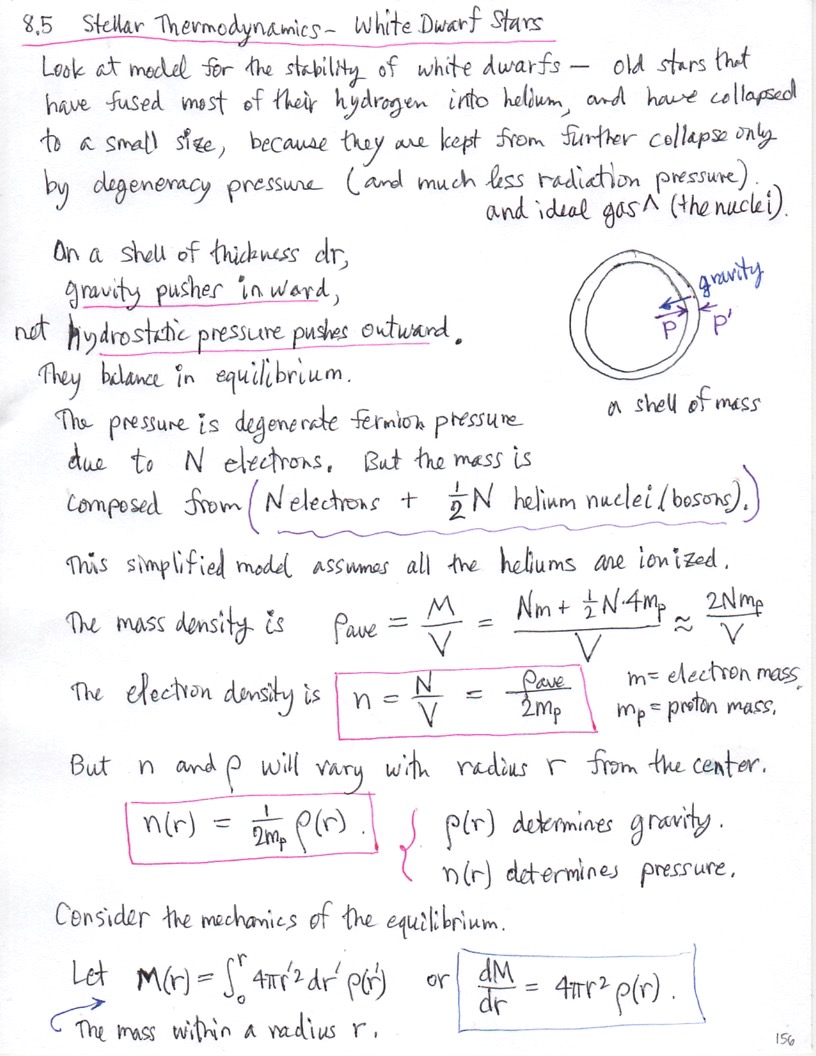 8.5 Stellar Thermodynamics - White Dwarf Stars
Look at model for the stability of white dwarfs — old stars that
have fused most of their hydrogen into helium, and have collapsed
to a small size, because they are kept from further collapse only
by degeneracy pressure (and much less radiation pressure).
and ideal gas ^ (the nuclei).
On a shell of thickness dr,
gravity pushes inward,
net hydrostatic pressure pushes outward.
They balance in equilibrium.
gravity
P P'
a shell of mass
The pressure is degenerate fermion pressure
due to N electrons. But the mass is
composed from (N electrons + ½N helium nuclei (bosons).)
This simplified model assumes all the heliums are ionized.
The mass density is ρave = M/V = (Nm + ½N·4mp)/V ≈ 2Nmp/V
The electron density is n = N/V = ρave/2mp
m = electron mass,
mp = proton mass.
But n and ρ will vary with radius r from the center.
n(r) = 1/2mp ρ(r).
{ ρ(r) determines gravity.
n(r) determines pressure.
Consider the mechanics of the equilibrium.
Let M(r) = ∫₀ʳ 4πr'² dr' ρ(r') or dM/dr = 4πr² ρ(r).
The mass within a radius r.
156